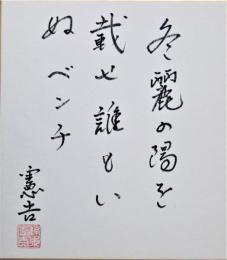 冬麗の陽を
載せ誰もい
ぬベンチ
憲吉